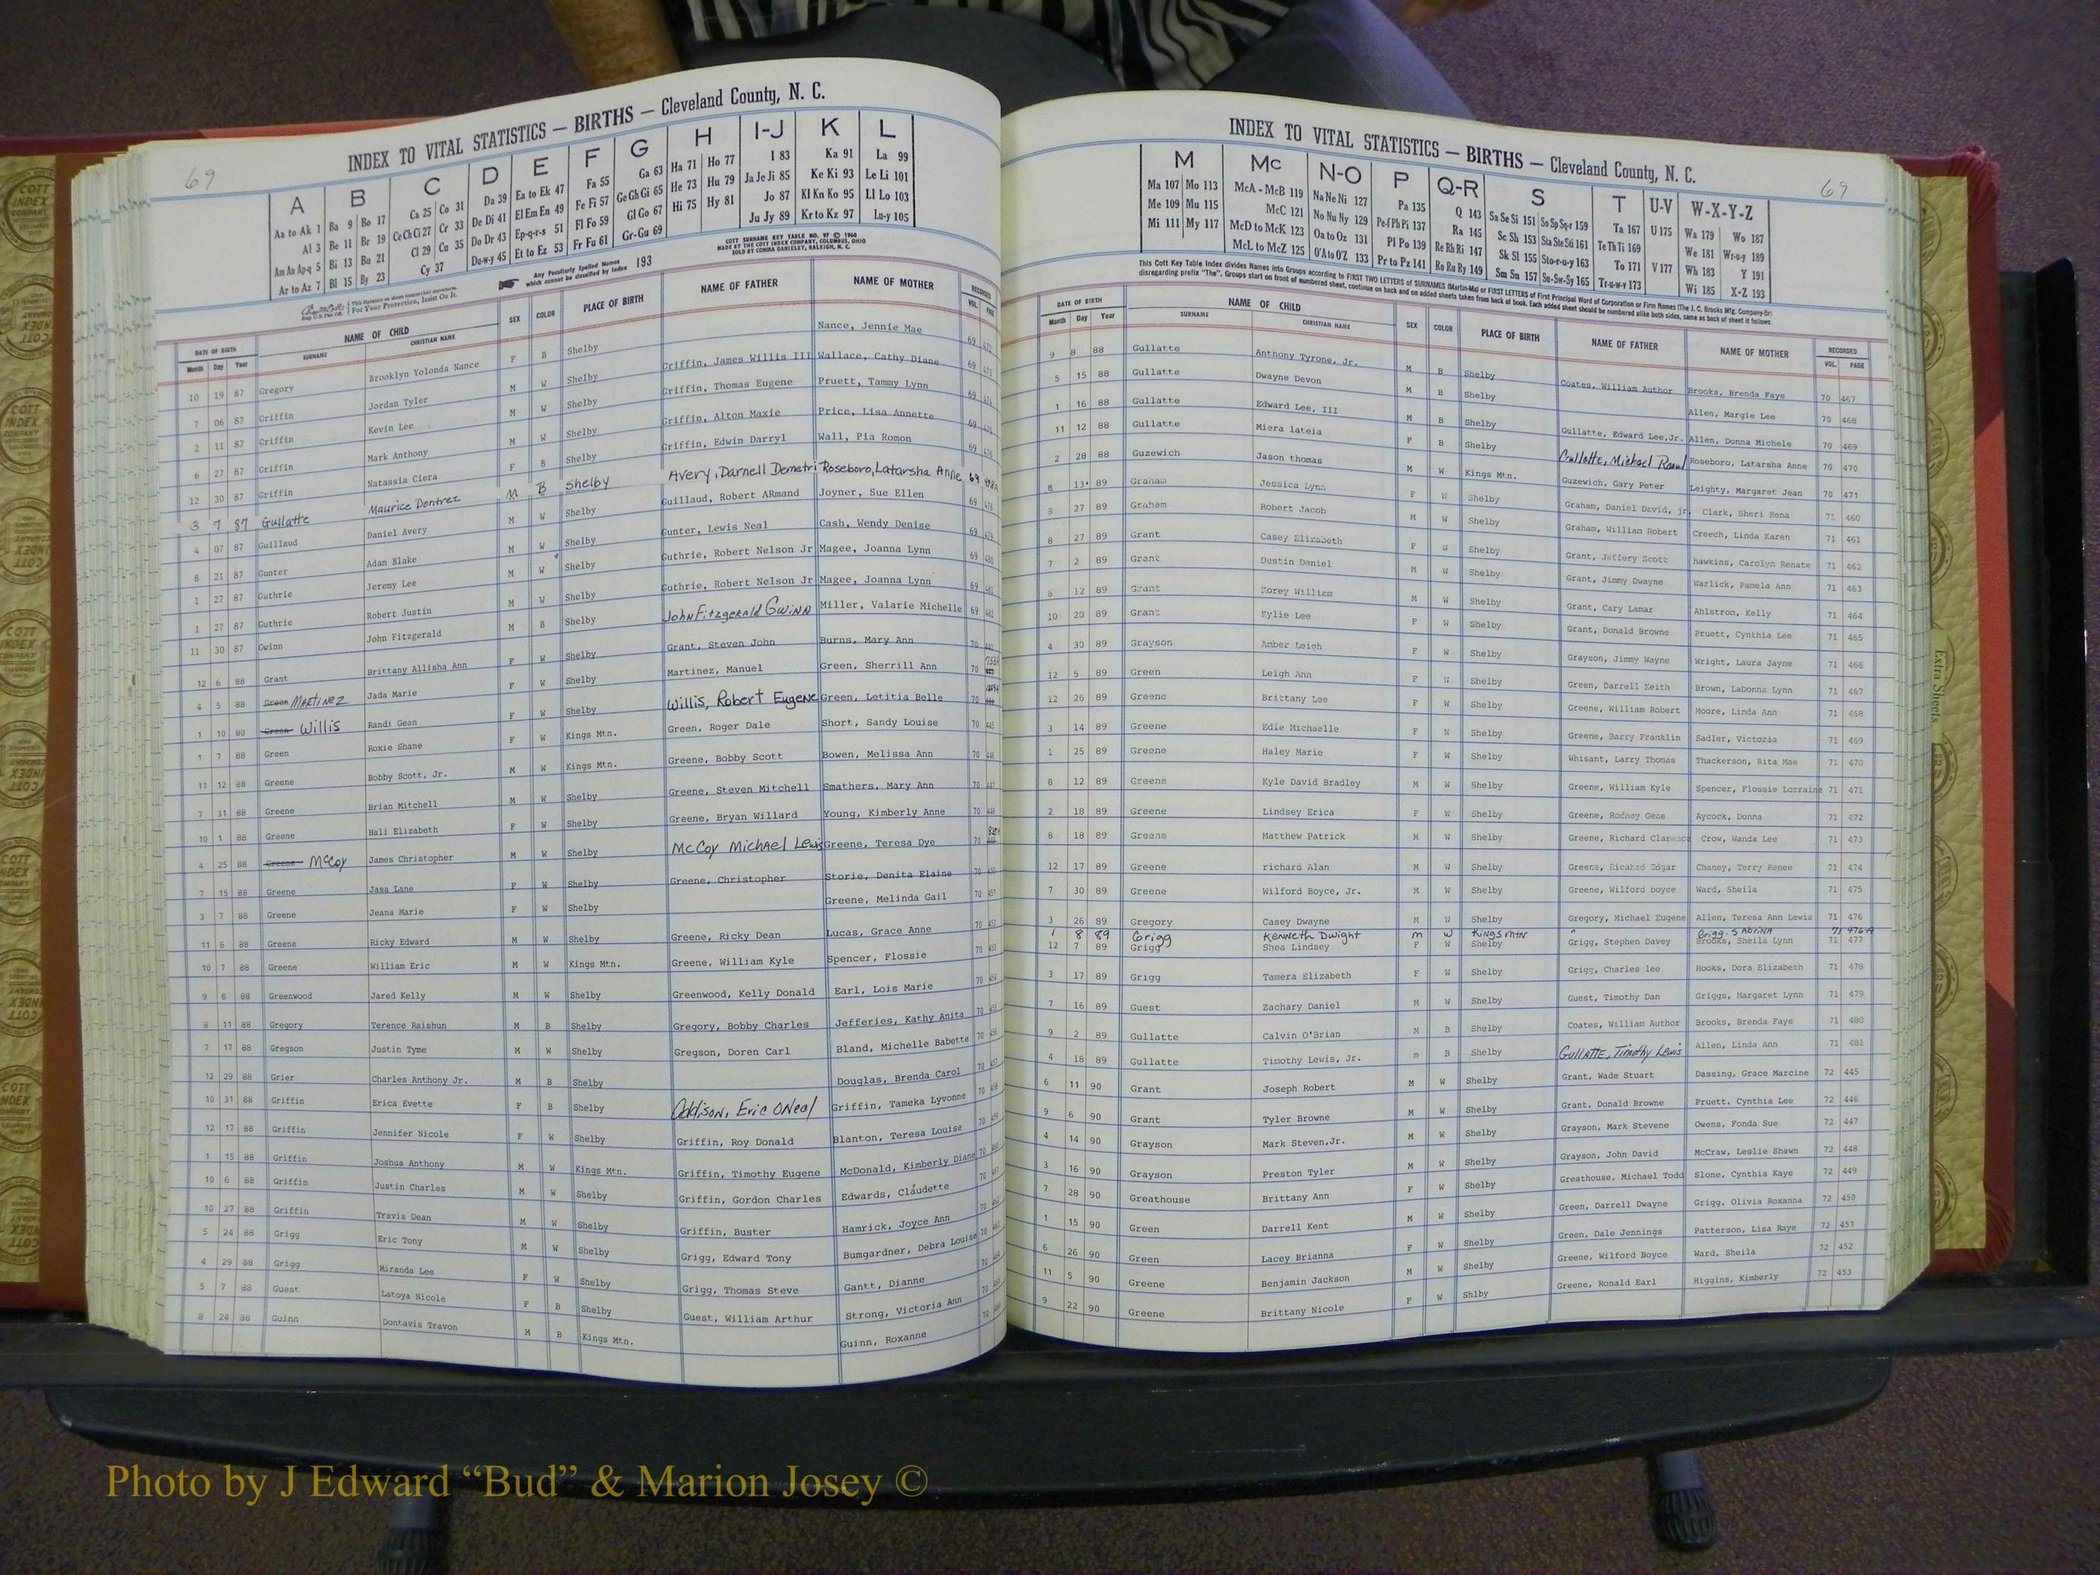 69
INDEX TO VITAL STATISTICS — BIRTHS — Cleveland County, N. C.
A B C D E F G H I-J K L
Aa to Ak 1 Ba 9 Bo 17 Ca 25 Co 31 Da 39 Ea to Ek 47 Fa 55 Ga 63 Ha 71 Ho 77 I 83 Ka 91 La 99
Al 3 Be 11 Br 19 Ce Ch Ci 27 Cr 33 De Di 41 El Em En 49 Fe Fi 57 Ge Gh Gi 65 He 73 Hu 79 Ja Je Ji 85 Ke Ki 93 Le Li 101
Am An Ap-q 5 Bi 13 Bu 21 Cl 29 Cu 35 Do Dr 43 Ep-q-r-s 51 Fl Fo 59 Gl Go 67 Hi 75 Hy 81 Jo 87 Kl Kn Ko 95 Ll Lo 103
Ar to Az 7 Bl 15 By 23 Cy 37 Du-w-y 45 Et to Ez 53 Fr Fu 61 Gr-Gu 69 Ju Jy 89 Kr to Kz 97 Lu-y 105
Any Peculiarly Spelled Names which cannot be classified by index 193
COTT SURNAME KEY TABLE NO. 97 © 1960
MADE BY THE COTT INDEX COMPANY, COLUMBUS, OHIO
SOLD BY COMMA DANIELEY, RALEIGH, N. C.
For Your Protection, Insist On It.
DATE OF BIRTH NAME OF CHILD SEX COLOR PLACE OF BIRTH NAME OF FATHER NAME OF MOTHER RECORDED
Month Day Year SURNAME CHRISTIAN NAME VOL. PAGE
10 19 87 Gregory Brooklyn Yolonda Nance F B Shelby Nance, Jennie Mae 69 472
7 06 87 Griffin Jordan Tyler M W Shelby Griffin, James Willis III Wallace, Cathy Diane 69 473
2 11 87 Griffin Kevin Lee M W Shelby Griffin, Thomas Eugene Pruett, Tammy Lynn 69 474
6 27 87 Griffin Mark Anthony M W Shelby Griffin, Alton Maxie Price, Lisa Annette 69
12 30 87 Griffin Natassia Ciera F B Shelby Griffin, Edwin Darryl Wall, Pia Romon 69 476
3 7 87 Gullatte Maurice Dontrez M B Shelby Avery, Darnell Demetri Roseboro, Latarsha Anne 69
4 07 87 Guillaud Daniel Avery M W Shelby Guillaud, Robert ARmand Joyner, Sue Ellen 69 478
8 21 87 Gunter Adam Blake M W Shelby Gunter, Lewis Neal Cash, Wendy Denise 69 479
1 27 87 Guthrie Jeremy Lee M W Shelby Guthrie, Robert Nelson Jr Magee, Joanna Lynn 69 480
1 27 87 Guthrie Robert Justin M W Shelby Guthrie, Robert Nelson Jr Magee, Joanna Lynn 69 481
11 30 87 Gwinn John Fitzgerald M B Shelby John Fitzgerald Gwinn Miller, Valarie Michelle 69 482
12 6 88 Grant Brittany Allisha Ann F W Shelby Grant, Steven John Burns, Mary Ann 70 441
4 5 88 Green MARTINEZ Jada Marie F W Shelby Martinez, Manuel Green, Sherrill Ann 70
1 10 88 Green Willis Randi Gean F W Shelby Willis, Robert Eugene Green, Letitia Belle 70
1 7 88 Green Roxie Shane F W Kings Mtn. Green, Roger Dale Short, Sandy Louise 70 445
11 12 88 Greene Bobby Scott, Jr. M W Kings Mtn. Greene, Bobby Scott Bowen, Melissa Ann 70 446
7 31 88 Greene Brian Mitchell M W Shelby Greene, Steven Mitchell Smathers, Mary Ann 70 447
10 1 88 Greene Hali Elizabeth F W Shelby Greene, Bryan Willard Young, Kimberly Anne 70 448
4 25 88 Greene McCoy James Christopher M W Shelby McCoy Michael Lewis Greene, Teresa Dye 70
7 15 88 Greene Jasa Lane F W Shelby Greene, Christopher Storie, Denita Elaine 70
3 7 88 Greene Jeana Marie F W Shelby Greene, Melinda Gail 70 451
11 6 88 Greene Ricky Edward M W Shelby Greene, Ricky Dean Lucas, Grace Anne 70 452
10 7 88 Greene William Eric M W Kings Mtn. Greene, William Kyle Spencer, Flossie 70 453
9 8 88 Greenwood Jared Kelly M W Shelby Greenwood, Kelly Donald Earl, Lois Marie 70 454
8 11 88 Gregory Terence Raishun M B Shelby Gregory, Bobby Charles Jefferies, Kathy Anita 70 455
7 17 88 Gregson Justin Tyme M W Shelby Gregson, Doren Carl Bland, Michelle Babette 70 456
12 29 88 Grier Charles Anthony Jr. M B Shelby Douglas, Brenda Carol 70 457
10 31 88 Griffin Erica Evette F B Shelby Addison, Eric ONeal Griffin, Tameka Lyvonne 70 458
12 17 88 Griffin Jennifer Nicole F W Shelby Griffin, Roy Donald Blanton, Teresa Louise 70 459
1 15 88 Griffin Joshua Anthony M W Kings Mtn. Griffin, Timothy Eugene McDonald, Kimberly Diane 70
10 6 88 Griffin Justin Charles M W Shelby Griffin, Gordon Charles Edwards, Claudette 70
10 27 88 Griffin Travis Dean M W Shelby Griffin, Buster Hamrick, Joyce Ann 70
5 24 88 Grigg Eric Tony M W Shelby Grigg, Edward Tony Bumgardner, Debra Louise 70
4 29 88 Grigg Miranda Lee F W Shelby Grigg, Thomas Steve Gantt, Dianne 70
5 7 88 Guest Latoya Nicole F B Shelby Guest, William Arthur Strong, Victoria Ann 70
8 24 88 Guinn Dontavis Travon M B Kings Mtn. Guinn, Roxanne 70
69
INDEX TO VITAL STATISTICS — BIRTHS — Cleveland County, N. C.
M Mc N-O P Q-R S T U-V W-X-Y-Z
Ma 107 Mo 113 McA - McB 119 Na Ne Ni 127 Pa 135 Q 143 Sa Se Si 151 So Sp Sq-r 159 Ta 167 U 175 Wa 179 Wo 187
Me 109 Mu 115 McC 121 No Nu Ny 129 Pe-f Ph Pi 137 Ra 145 Sc Sh 153 Sta Ste Sti 161 Te Th Ti 169 We 181 Wr-u-y 189
Mi 111 My 117 McD to McK 123 Oa to Oz 131 Pl Po 139 Re Rh Ri 147 Sk Sl 155 Sto-r-u-y 163 To 171 V 177 Wh 183 Y 191
McL to McZ 125 O'A to O'Z 133 Pr to Pz 141 Ro Ru Ry 149 Sm Sn 157 Su-Sw-Sy 165 Tr-u-w-y 173 Wi 185 X-Z 193
This Cott Key Table Index divides Names into Groups according to FIRST TWO LETTERS of SURNAMES (Martin-Ma) or FIRST LETTERS of First Principal Word of Corporation or Firm Names (The J. C. Brooks Mfg. Company-Br)
disregarding prefix "The". Groups start on front of numbered sheet, continue on back and on added sheets taken from back of book. Each added sheet should be numbered alike both sides, same as back of sheet it follows
DATE OF BIRTH NAME OF CHILD SEX COLOR PLACE OF BIRTH NAME OF FATHER NAME OF MOTHER RECORDED
Month Day Year SURNAME CHRISTIAN NAME VOL. PAGE
9 8 88 Gullatte Anthony Tyrone, Jr. M B Shelby Coates, William Author Brooks, Brenda Faye 70 467
5 15 88 Gullatte Dwayne Devon M B Shelby Allen, Margie Lee 70 468
1 16 88 Gullatte Edward Lee, III M B Shelby Gullatte, Edward Lee,Jr. Allen, Donna Michele 70 469
11 12 88 Gullatte Miera lateia F B Shelby Gullatte, Michael Roseboro, Latarsha Anne 70 470
2 28 88 Guzewich Jason thomas M W Kings Mtn. Guzewich, Gary Peter Leighty, Margaret Jean 70 471
8 13 89 Graham Jessica Lynn F W Shelby Graham, Daniel David, jr. Clark, Sheri Rena 71 460
8 27 89 Graham Robert Jacob M W Shelby Graham, William Robert Creech, Linda Karen 71 461
8 27 89 Grant Casey Elizabeth F W Shelby Grant, Jeffery Scott hawkins, Carolyn Renate 71 462
7 2 89 Grant Dustin Daniel M W Shelby Grant, Jimmy Dwayne Warlick, Pamela Ann 71 463
6 12 89 Grant Korey William M W Shelby Grant, Cary Lamar Ahlstrom, Kelly 71 464
10 20 89 Grant Kylie Lee F W Shelby Grant, Donald Browne Pruett, Cynthia Lee 71 465
4 30 89 Grayson Amber Leigh F W Shelby Grayson, Jimmy Wayne Wright, Laura Jayne 71 466
12 5 89 Green Leigh Ann F W Shelby Green, Darrell Keith Brown, LaDonna Lynn 71 467
12 26 89 Greene Brittany Lee F W Shelby Greene, William Robert Moore, Linda Ann 71 468
3 14 89 Greene Edie Michaelle F W Shelby Greene, Barry Franklin Sadler, Victoria 71 469
1 25 89 Greene Haley Marie F W Shelby Whisant, Larry Thomas Thackerson, Rita Mae 71 470
8 12 89 Greene Kyle David Bradley M W Shelby Greene, William Kyle Spencer, Flossie Lorraine 71 471
2 18 89 Greene Lindsey Erica F W Shelby Greene, Rodney Gene Aycock, Donna 71 472
8 18 89 Greene Matthew Patrick M W Shelby Greene, Richard Clarence Crow, Wanda Lee 71 473
12 17 89 Greene richard Alan M W Shelby Greene, Ricahrd Edgar Chaney, Terry Renee 71 474
7 30 89 Greene Wilford Boyce, Jr. M W Shelby Greene, Wilford boyce Ward, Sheila 71 475
3 26 89 Gregory Casey Dwayne M W Shelby Gregory, Michael Eugene Allen, Teresa Ann Lewis 71 476
1 8 89 Grigg Kenneth Dwight m W Kings mtn Grigg, Sabrina 71 476A
12 7 89 Grigg Shea Lindsey F W Shelby Grigg, Stephen Davey Brooks, Sheila Lynn 71 477
3 17 89 Grigg Tamera Elizabeth F W Shelby Grigg, Charles lee Hooks, Dora Elizabeth 71 478
7 16 89 Guest Zachary Daniel M W Shelby Guest, Timothy Dan Griggs, Margaret Lynn 71 479
9 2 89 Gullatte Calvin O'Brian M B Shelby Coates, William Author Brooks, Brenda Faye 71 480
4 18 89 Gullatte Timothy Lewis, Jr. m B Shelby Gullatte, Timothy Lewis Allen, Linda Ann 71 481
6 11 90 Grant Joseph Robert M W Shelby Grant, Wade Stuart Dassing, Grace Marcine 72 445
9 6 90 Grant Tyler Browne M W Shelby Grant, Donald Browne Pruett, Cynthia Lee 72 446
4 14 90 Grayson Mark Steven,Jr. M W Shelby Grayson, Mark Stevene Owens, Fonda Sue 72 447
3 16 90 Grayson Preston Tyler M W Shelby Grayson, John David McCraw, Leslie Shawn 72 448
7 28 90 Greathouse Brittany Ann F W Shelby Greathouse, Michael Todd Slone, Cynthia Kaye 72 449
1 15 90 Green Darrell Kent M W Shelby Green, Darrell Dwayne Grigg, Olivia Roxanna 72 450
6 26 90 Green Lacey Brianna F W Shelby Green, Dale Jennings Patterson, Lisa Raye 72 451
11 5 90 Greene Benjamin Jackson M W Shelby Greene, Wilford Boyce Ward, Sheila 72 452
9 22 90 Greene Brittany Nicole F W Shlby Greene, Ronald Earl Higgins, Kimberly 72 453
Extra Sheets
COTT INDEX COMPANY
Photo by J Edward “Bud” & Marion Josey ©